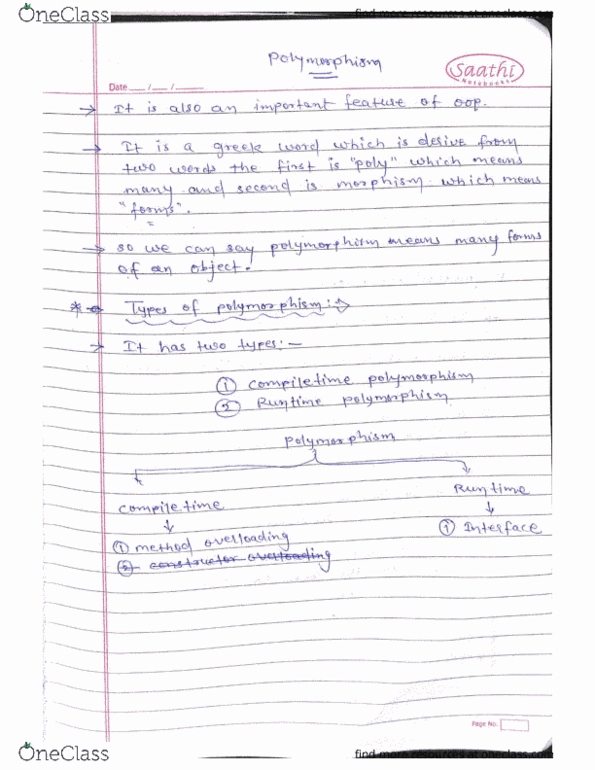 OneClass
find more resources at oneclass.com
Polymorphism
Saathi
Notebooks
Date ___/___/___
→ It is also an important feature of oop.
→ It is a greek word which is desive from
two words the first is "poly" which means
many and second is morphism which means
"forms".
→ so we can say polymorphism means many forms
of an object.
* → Types of polymorphism:→
→ It has two types:-
① compiletime polymorphism
② Runtime polymorphism
polymorphism
compiletime
Runtime
① method overloading
① Interface
② constructor overloading
Page No.
OneClass
find more resources at oneclass.com